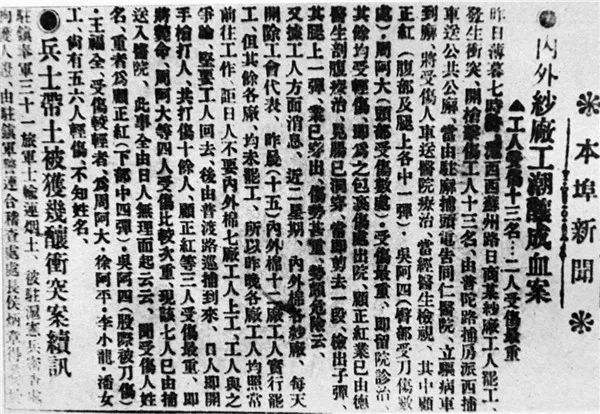 本埠新聞
●內外紗廠工潮釀成血案
▲工人受傷十三名…二人受傷最重
昨日薄暮七時許、滬西西蘇州路日商某紗廠工人罷工、
發生衝突、開槍擊傷工人十三名、由普陀路捕房派西捕
車送公共公廨、當由駐廨捕頭電告同仁醫院、立驅病車
到廨、將受傷人車送醫院療治、當經醫生檢視、其中顧
正紅(腹部及腿上各中一彈)吳阿四(臂部受刀傷數
處)周阿大(頭部受傷數處)受傷最重、即留院診治、
其餘均受輕傷、即爲之包裹傷處出院、顧正紅業已由德
醫生剖腹療治、見腸已洞穿、當即剪去一段、檢出子彈、
其腿上一彈、業已穿出、傷勢甚重、勢頗危險云、
又據工人方面消息、近二星期、內外棉各紗廠、每天
開除工會代表、昨晨(十五)內外棉十二廠工人實行罷
工、但其餘各廠、均未罷工、所以昨晚各廠工人均照常
前往工作、詎日人不要內外棉七廠工人上工、工人與之
爭論、堅要工人回去、後由普波路巡捕到來、日人即開
手槍打人、共打傷十餘人、顧正紅等三人受傷最重、即
將斃命、周阿大等四人受傷比較次重、現該七人已由捕
送入醫院、此事全由日人無理而起云云、聞受傷人姓
名、重者爲顧正紅(下部中四彈)吳阿四(股際被刀傷)
王福全、受傷較輕者、爲周阿大・徐阿平・李小龍・潘女
工、尚有五六人輕傷、不知姓名、
●兵士帶土被獲幾釀衝突案續訊
駐鎮奉軍三十一旅軍士輸運烟土、被駐滬憲兵
拘獲人證、由駐鎮軍警連合稽查處處長侯炳章